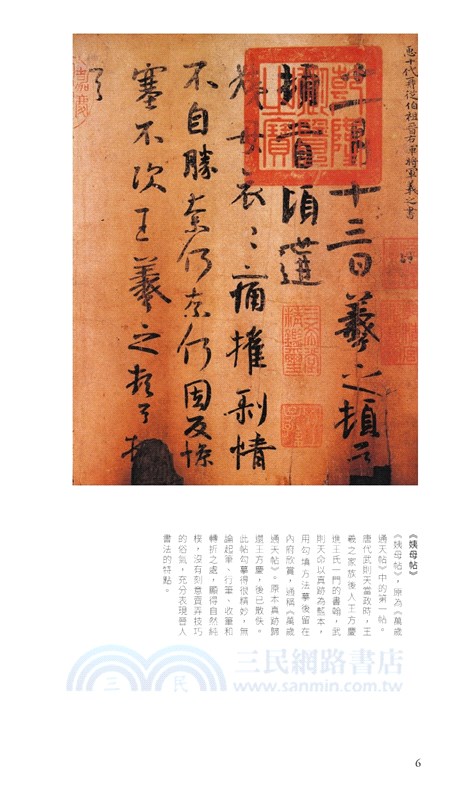 𢘑十代再從伯祖晉右軍將軍羲之書
十一月十三日羲之頓首
頓首頃遘
姨母哀哀痛摧剝情
不自勝奈何奈何因反慘
塞不次王羲之頓首頓
首
乾隆御覽之寶
三希堂精鑑璽
宜子孫
《姨母帖》
《姨母帖》,原為《萬歲
通天帖》中的第一帖。
唐代武則天當政時,王
羲之家族後人王方慶
進王氏一門的書翰,武
則天命以真跡為藍本,
用勾填方法摹復留在
內府欣賞,通稱《萬歲
通天帖》。原本真跡歸
還王方慶,後已散佚。
此帖勾摹得很精妙,無
論起筆、行筆、收筆和
轉折之處,顯得自然純
樸,沒有刻意賣弄技巧
的俗氣,充分表現晉人
書法的特點。
三民網路書店
www.sanmin.com.tw
三民
6